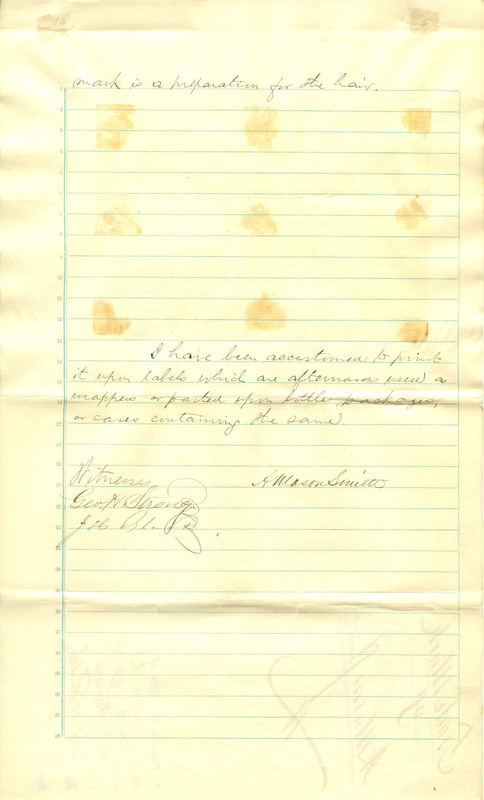 mark is a preparation for the hair.
I have been accustomed to print
it upon labels which are afterwards used as
wrappers or pasted upon bottles packages,
or cases containing the same.
Witnesses
H Mason Smith
Geo. H. Strong